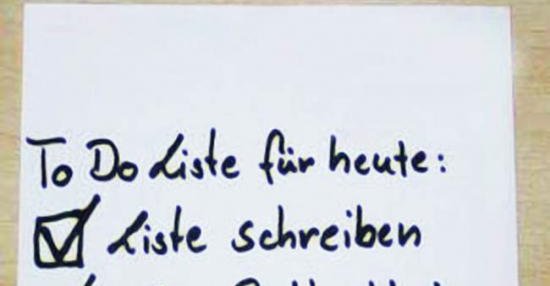 To Do Liste für heute:
Liste schreiben